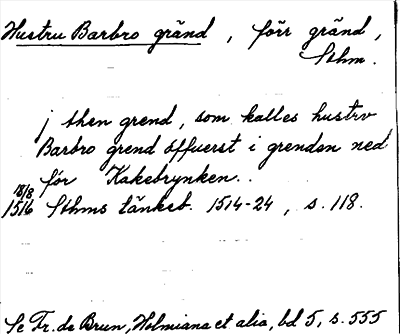 Hustru Barbro gränd, förr gränd,
Sthm.
j then grend, som kalles hustrv
Barbro grend öffuerst i grenden ned
för Kakebrynken.
18/8
1516 Sthms tänkeb. 1514-24, s. 118.
Se Fr. de Brun, Holmiana et alia, bd 5, s. 555